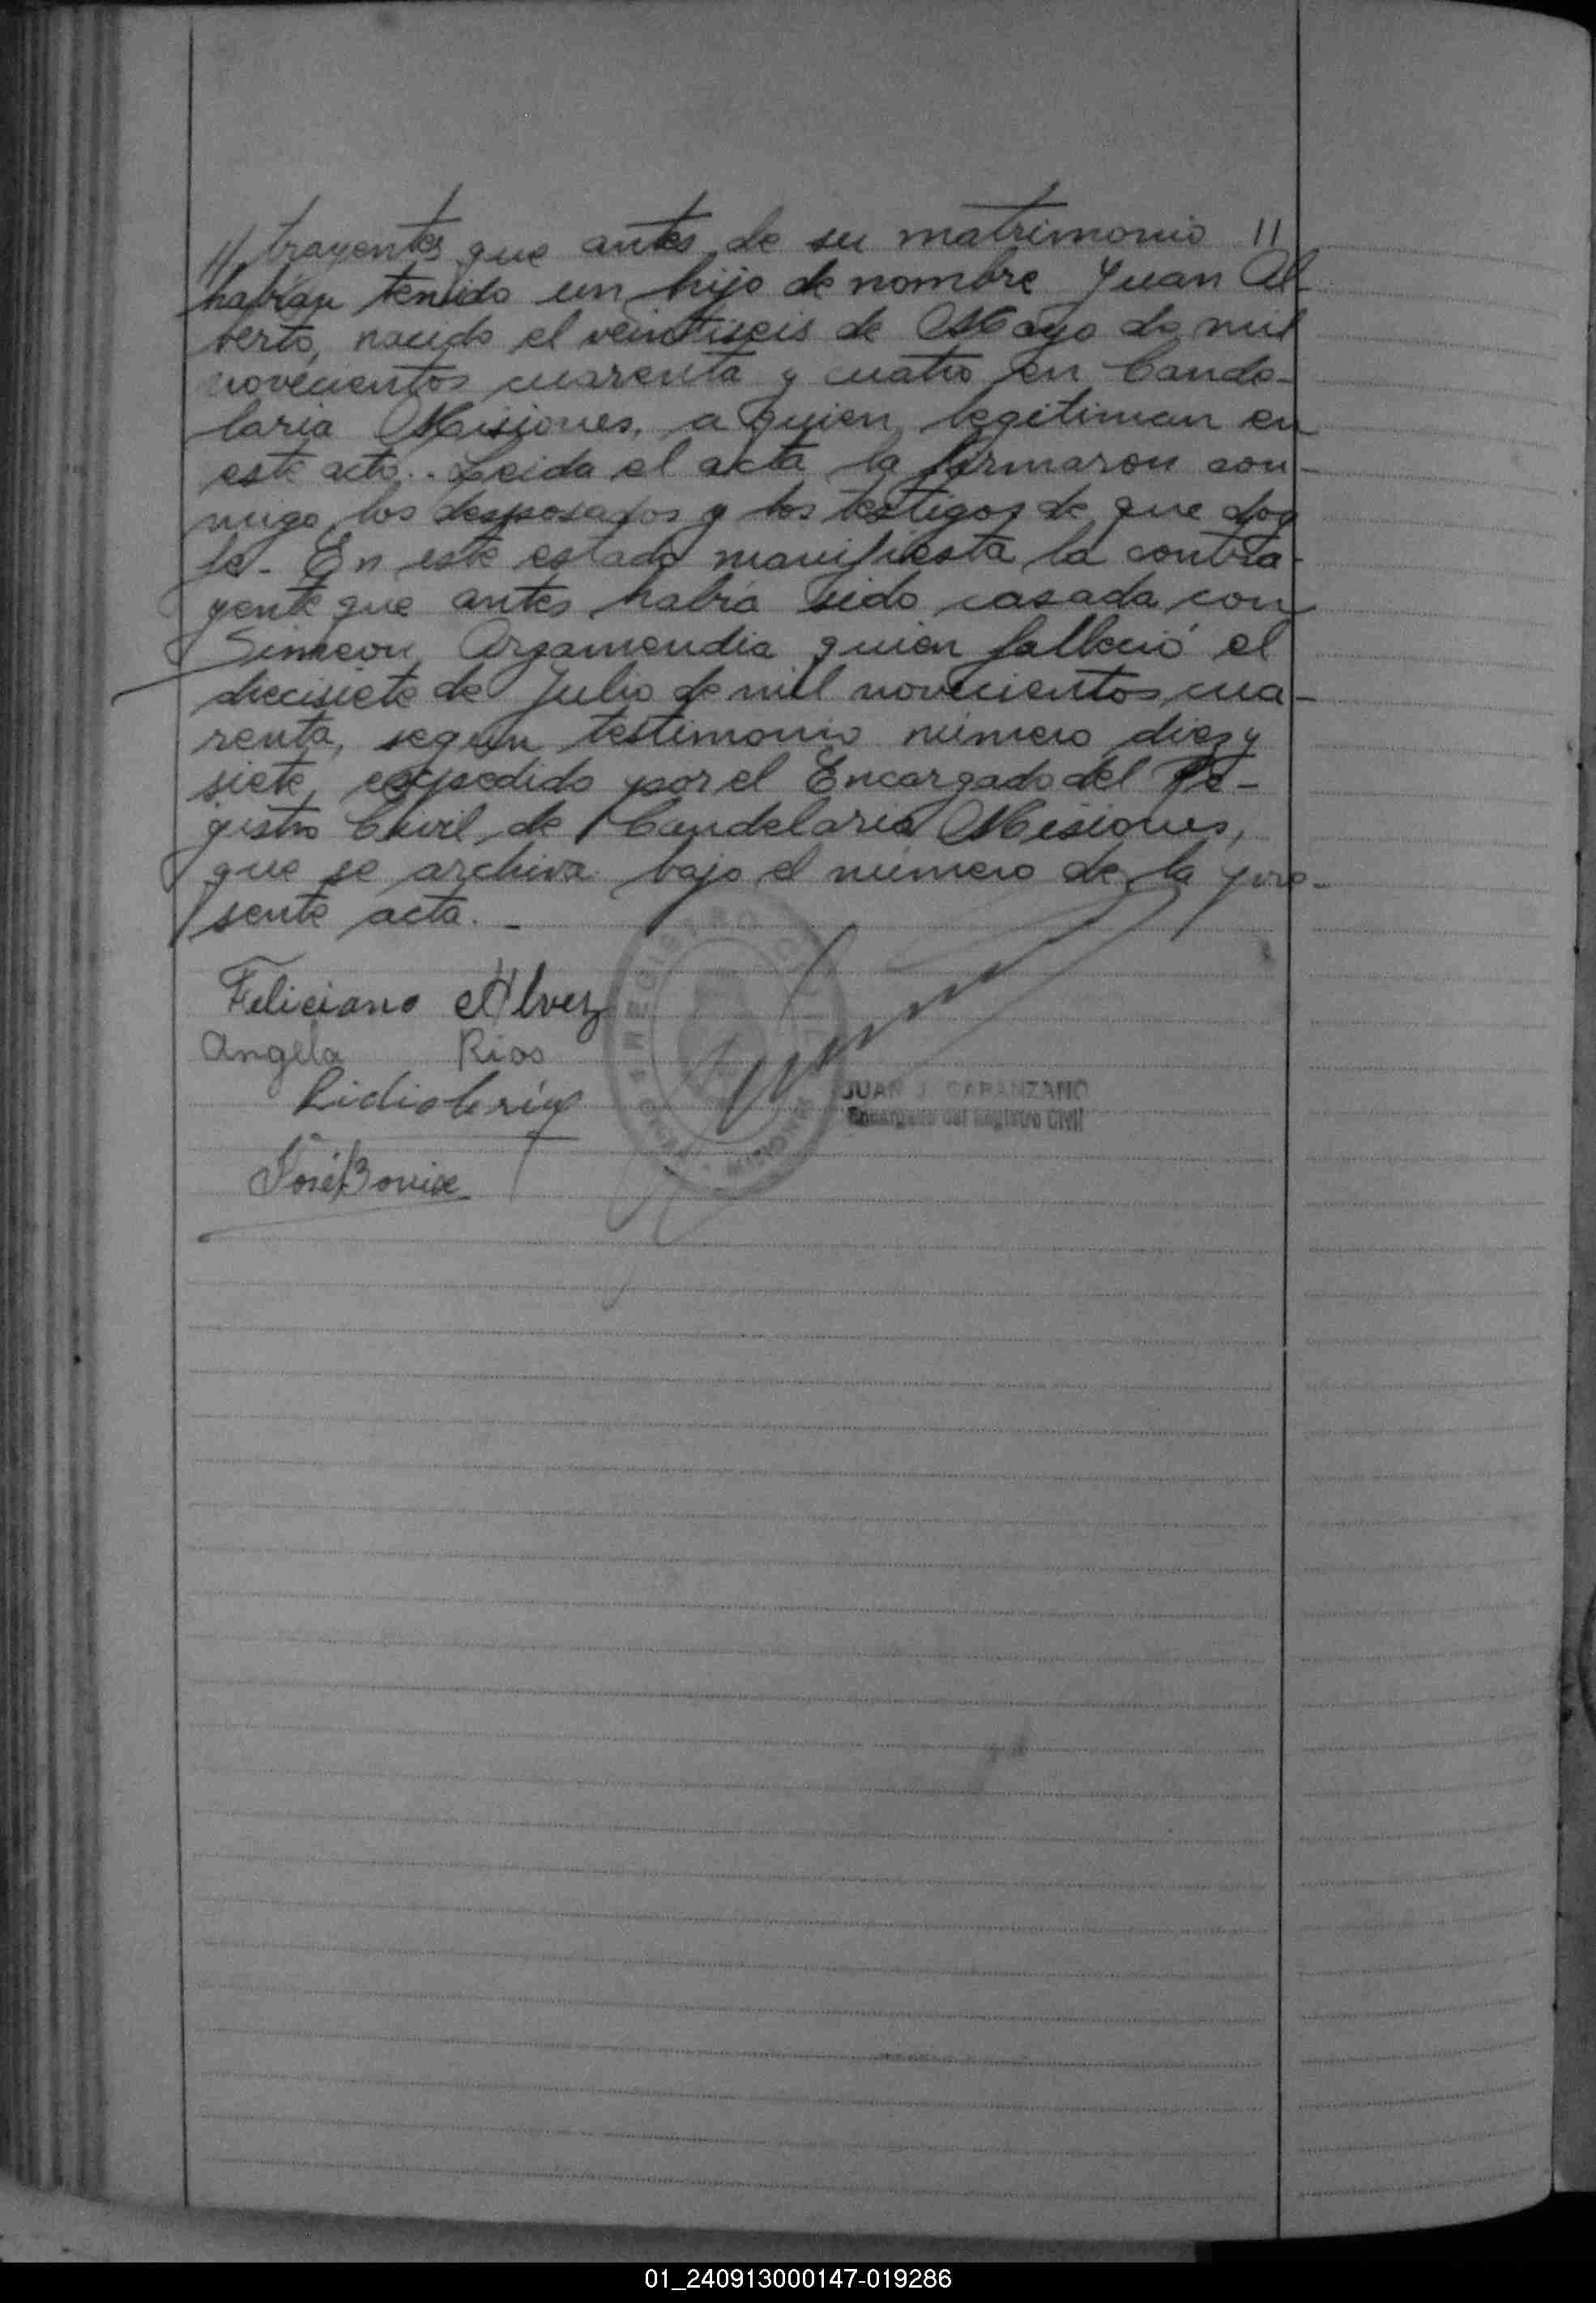 // trayentes que antes de su matrimonio //
habian tenido un hijo de nombre Juan Al-
berto, nacido el veintiseis de Mayo de mil
novecientos cuarenta y cuatro en Cande-
laria Misiones, a quien legitiman en
este acto.. Leida el acta la firmaron con-
migo los desposados y los testigos de que doy
fe.- En este estado manifiesta la contra-
yente que antes habia sido casada con
Simeon Argamendia quien falleció el
diecisiete de Julio de mil novecientos cua-
renta, segun testimonio número diez y
siete, expedido por el Encargado del Re-
gistro Civil de Candelaria Misiones,
que se archiva bajo el número de la pre-
sente acta.-
Feliciano Alvez
Angela Rios
José
REGISTRO CIVIL
MISIONES
JUAN J. CARANZANO
Encargado del Registro Civil
01_240913000147-019286